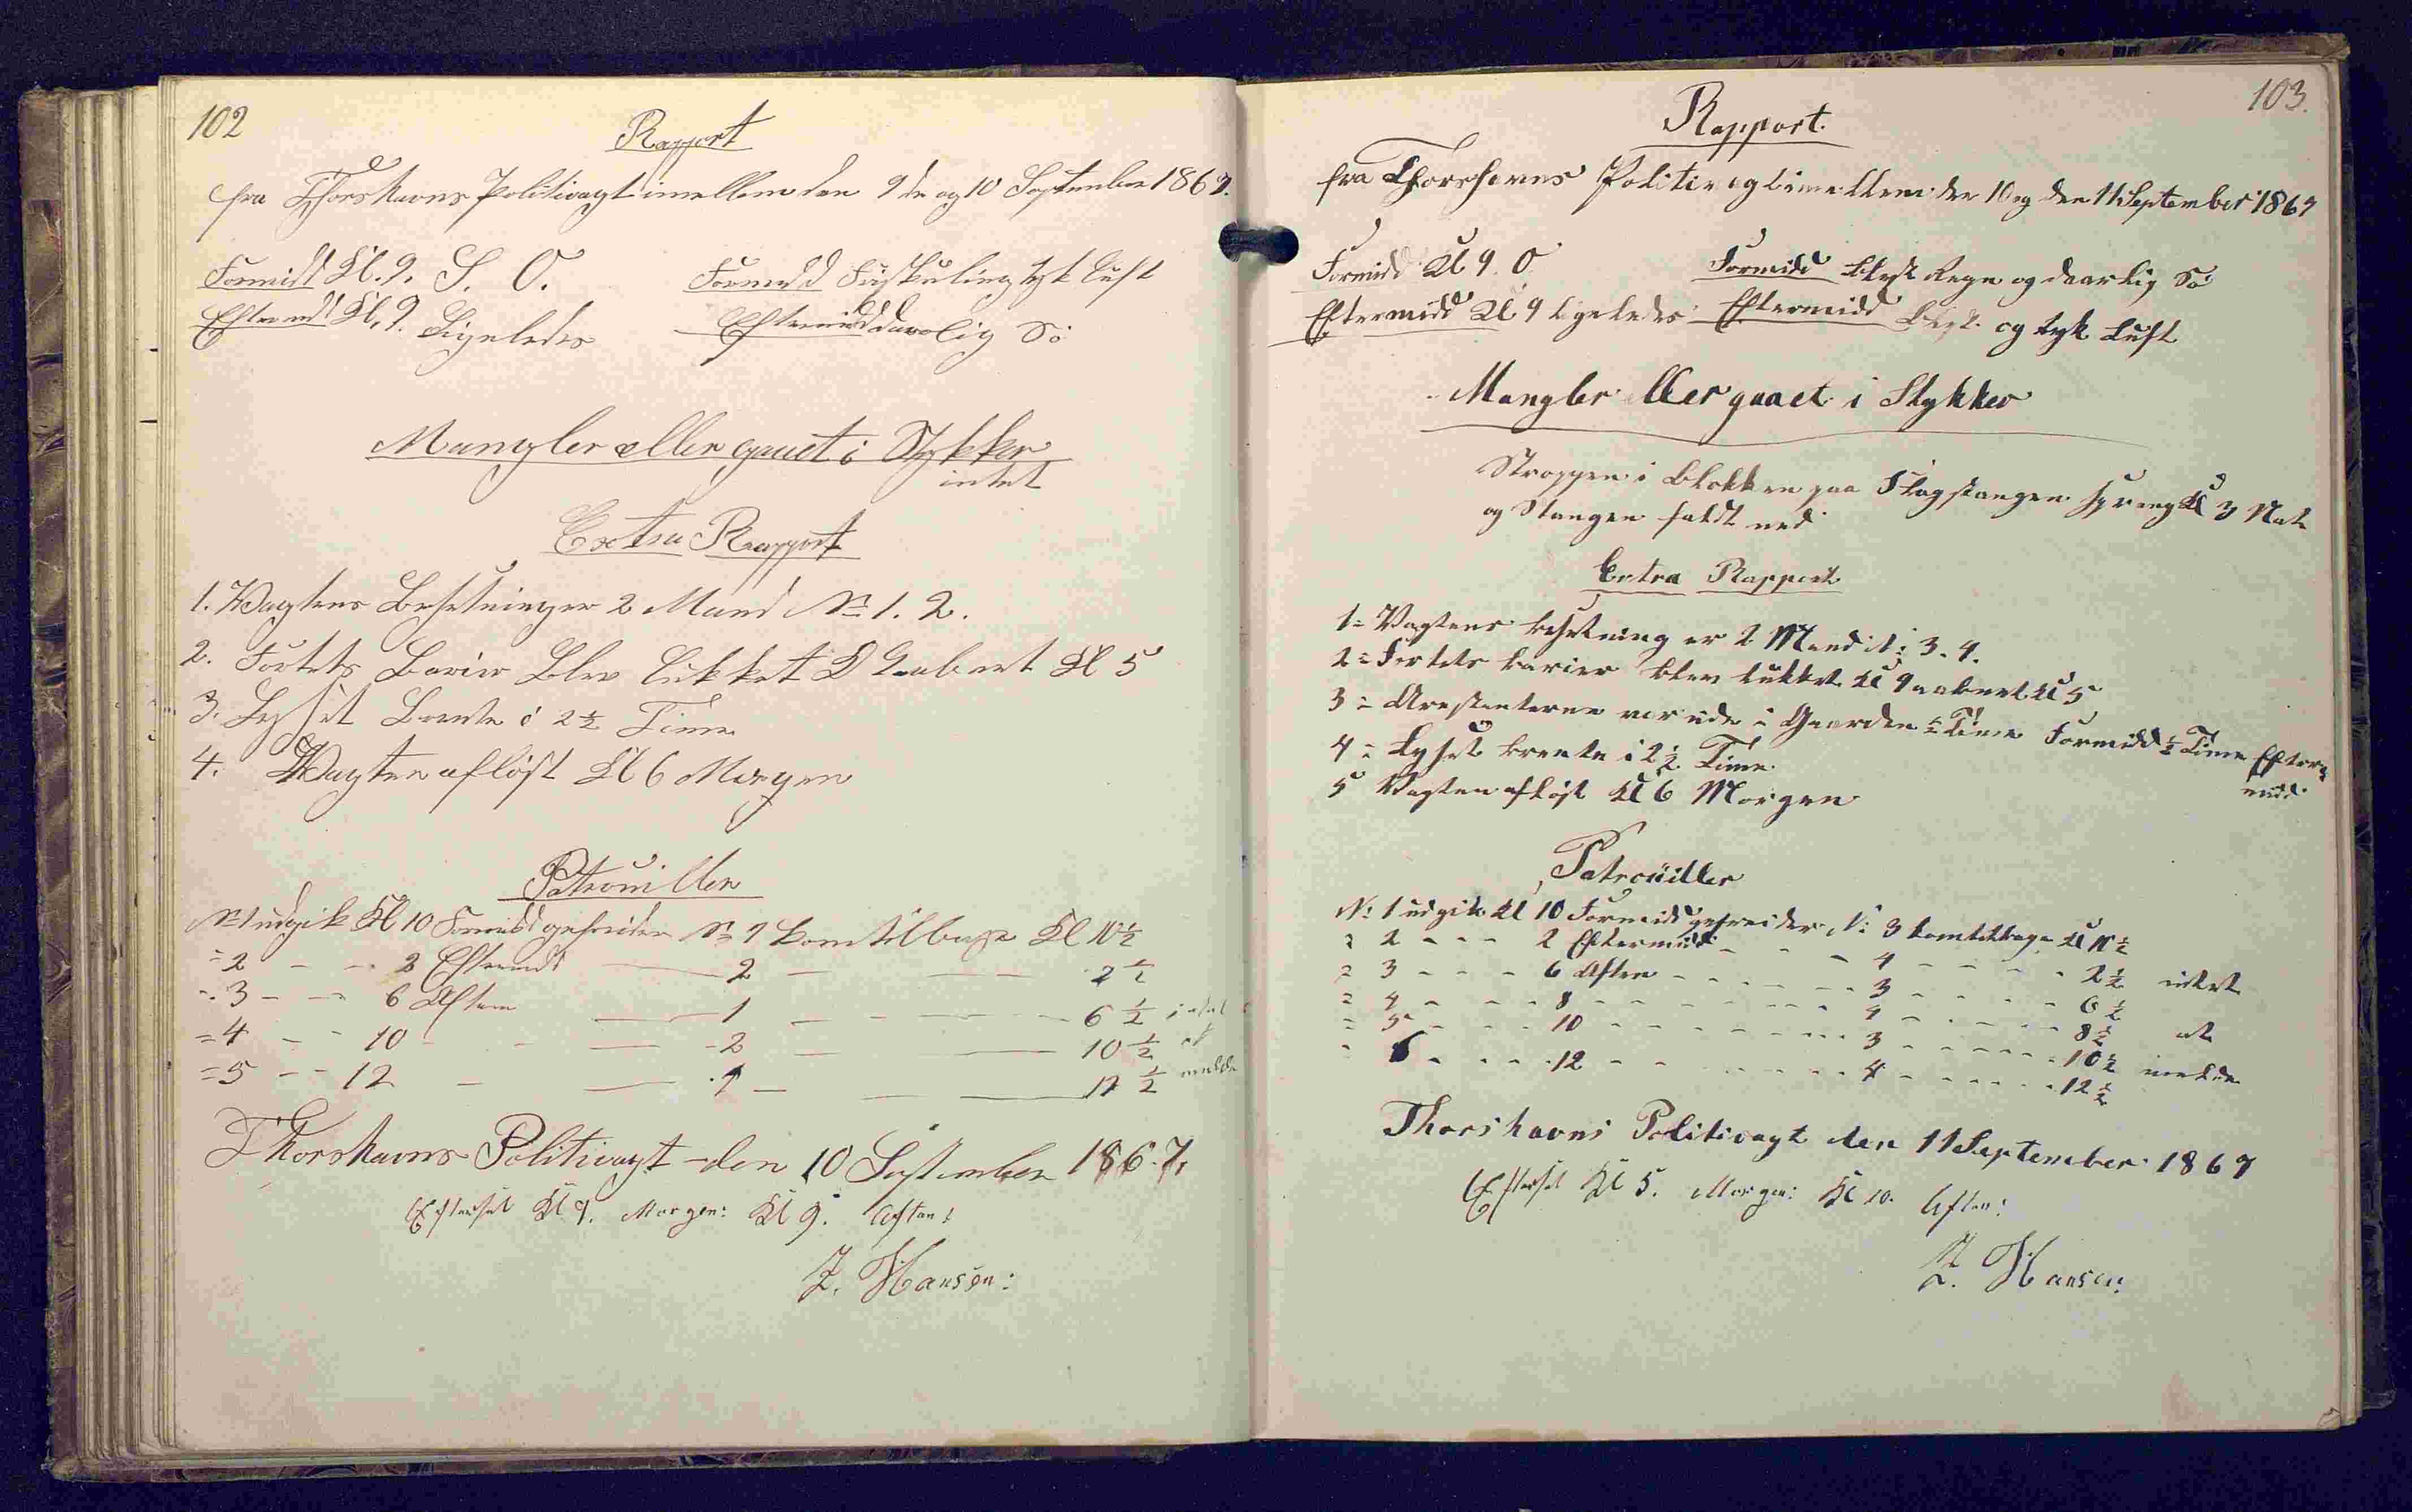 102
Rapport
fra Thorshavns Politivagt imellem den 9de og 10 September 1867.
Formidd Kl. 9. S. O. Formidd Friskuling tyk Luft
Eftermidd Kl. 9. Ligeledes Eftermidd daarlig Sö
Mangler eller gaaet i Stykker
intet
Extra Rapport
1. Wagtens Besetning er 2 Mand No 1. 2.
2. Fortets Barier Blev lukket 9 aabnet Kl 5
3. Lyset Brente i 2½ Time
4. Wagten aflöst Kl 6 Morgen
Patrouiller
No 1 udgik Kl 10 Formidd gefreider No 1 kom tilbage Kl 10½
= 2 - - 2 Eftermidd - 2 - - 2½
= 3 - - 6 Aften - 1 - - 6½ intet
= 4 - - 10 - - 2 - - 10½ at
= 5 - - 12 - - 1 - - 12½ melde
Thorshavns Politivagt den 10 September 1867.
Efterset Kl 9. Morgen: Kl 9. Aften:
Z. Hansen:
103.
Rapport.
fra Thorshavns Politivagt imellem den 10 og den 11 September 1867
Formidd Kl 9. O Formidd Blest Regn og daarlig Sö
Eftermidd Kl 9 ligeledes Eftermidd Blest og tyk Luft
Mangler eller gaaet i Stykker
Stroppen i Blokken paa Flagstangen sprang Kl 3 Nat
og Stangen faldt ned
Extra Rapport
1= Vagtens besetning er 2 Mand No 3. 4.
2= Fortets barier blev lukket Kl 9 aabnet Kl 5
3= Arestanterne var ude i Gaarden ½ Time Formidd ½ Time Efter
midd.
4= Lyset brente i 2½ Time
5 Vagten aflöst Kl 6 Morgen
Patrouiller
No 1 udgik Kl 10 Formidd gefreider No 3 kom tilbage Kl 10½
= 2 - - - 2 Eftermidd - - - 4 - - - - 2½ intet
= 3 - - - 6 Aften - - - - 3 - - - - 6½
= 4 - - - 8 - - - - 4 - - - - 8½ at
= 5 - - - 10 - - - - 3 - - - - 10½ melde
= 6 - - - 12 - - - - 4 - - - - 12½
Thorshavns Politivagt den 11 September 1867
Efterset Kl 5. Morgen: Kl 10. Aften:
Z. Hansen: